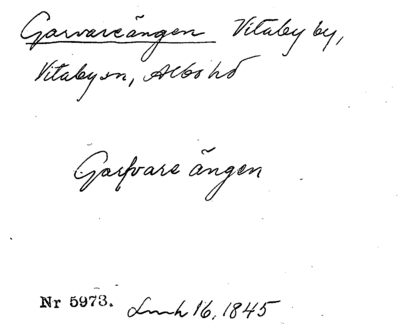 Garvareängen Vitaby by,
Vitaby sn, Albo hd
Garfvare ängen
Nr 5973. Lmh 16, 1845